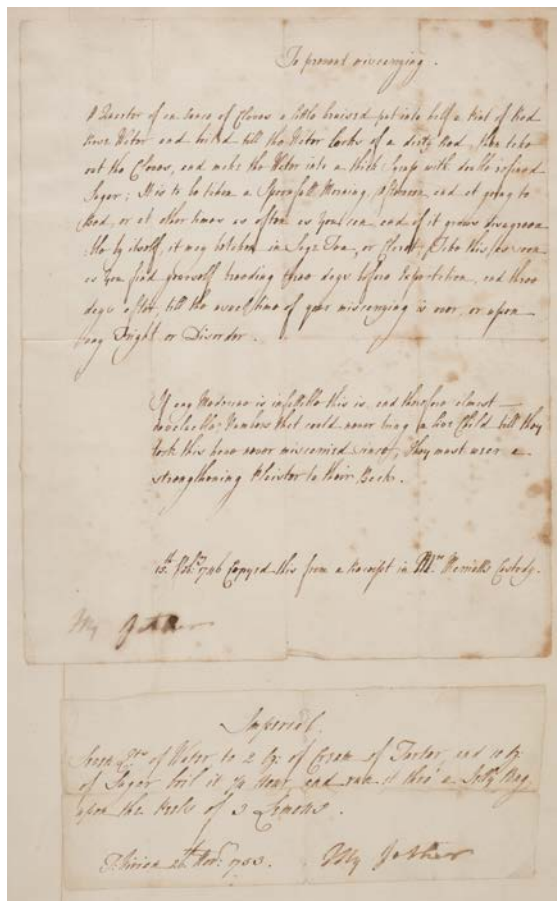 To prevent miscarrying.
A Quarter of an ounce of Cloves a little bruised put into half a Pint of Red
Rose Water and boil'd till the Water looks of a dirty Red, then take
out the Cloves, and make the Water into a thick Syrup with double refined
Sugar; It is to be taken a Spoonfull Morning, Afternoon and at going to
Bed, or at other times as often as You can and if it grows disagreea
:ble by itself, it may be taken in Sage Tea, or Claret. Take this as soon
as You find yourself breeding three days before Expectation, and three
days after, till the usual time of your miscarrying is over, or upon
any Fright or Disorder.
If any Medicine is infallible this is, and therefore almost
invaluable: Numbers that could never bring a live Child till they
took this have never miscarried since; They must wear a
strengthening Plaister to their Back.
12th. Feb:ry 1746 Copyed this from a Receipt in Mrs Custody.
My Father
Imperial.
Qts of Water, to 2 oz: of Cream of Tartar, and 10 oz:
of Sugar boil it 1/2 Hour, and run it thro' a Jelly Bag
upon the Peels of 3 Lemons.
Novr: 1753. My Father